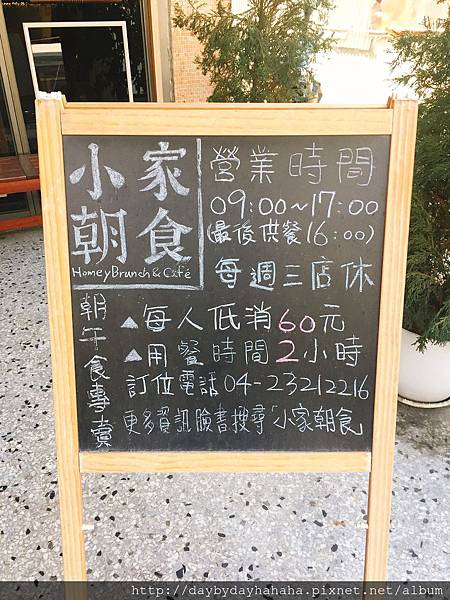 小家
朝食
HomeyBrunch & Café
營業時間
09:00~17:00
(最後供餐16:00)
每週三店休
朝午食專賣
▲每人低消60元
▲用餐時間2小時
訂位電話04-23212216
更多資訊臉書搜尋「小家朝食」
http://daybydayhahaha.pixnet.net/album